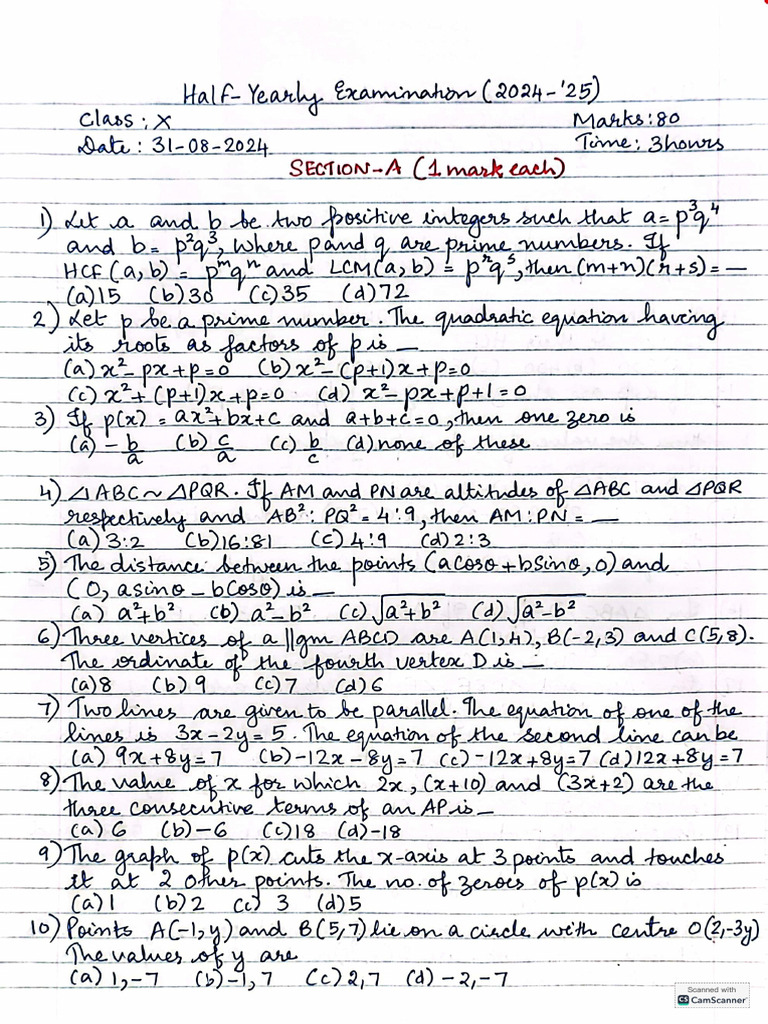 Half-Yearly Examination (2024-'25)
Class : X Marks: 80
Date : 31-08-2024 Time : 3 hours
SECTION-A (1 mark each)
1) Let a and b be two positive integers such that a = p³q⁴
and b = p²q³, where p and q are prime numbers. If
HCF(a,b) = pᵐqⁿ and LCM(a,b) = pʳqˢ, then (m+n)(r+s) = —
(a) 15 (b) 30 (c) 35 (d) 72
2) Let p be a prime number. The quadratic equation having
its roots as factors of p is —
(a) x²-px+p=0 (b) x²-(p+1)x+p=0
(c) x²+(p+1)x+p=0 (d) x²-px+p+1=0
3) If p(x) = ax²+bx+c and a+b+c=0, then one zero is
(a) -b/a (b) c/a (c) b/c (d) none of these
4) △ABC ~ △PQR. If AM and PN are altitudes of △ABC and △PQR
respectively and AB² : PQ² = 4:9, then AM : PN = —
(a) 3:2 (b) 16:81 (c) 4:9 (d) 2:3
5) The distance between the points (a cosθ + b sinθ, 0) and
(0, a sinθ - b cosθ) is —
(a) a²+b² (b) a²-b² (c) √a²+b² (d) √a²-b²
6) Three vertices of a ||gm ABCD are A(1,4), B(-2,3) and C(5,8).
The ordinate of the fourth vertex D is —
(a) 8 (b) 9 (c) 7 (d) 6
7) Two lines are given to be parallel. The equation of one of the
lines is 3x-2y=5. The equation of the second line can be
(a) 9x+8y=7 (b) -12x-8y=7 (c) -12x+8y=7 (d) 12x+8y=7
8) The value of x for which 2x, (x+10) and (3x+2) are the
three consecutive terms of an AP is —
(a) 6 (b) -6 (c) 18 (d) -18
9) The graph of p(x) cuts the x-axis at 3 points and touches
it at 2 other points. The no. of zeroes of p(x) is
(a) 1 (b) 2 (c) 3 (d) 5
10) Points A(-1,y) and B(5,7) lie on a circle with centre O(2,-3y)
The values of y are
(a) 1,-7 (b) -1,7 (c) 2,7 (d) -2,-7
Scanned with
CS CamScanner